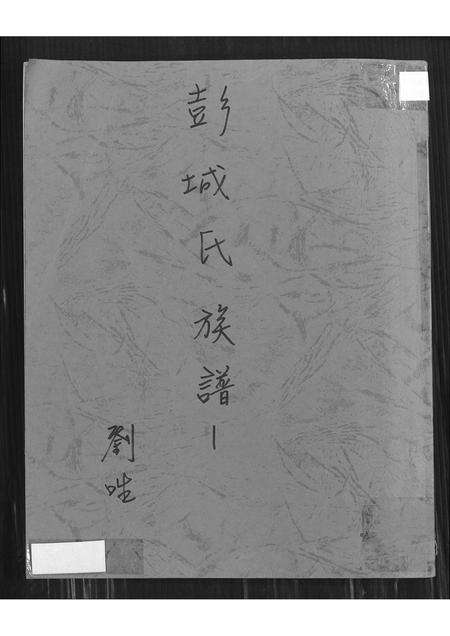 彭城氏族譜1
劉